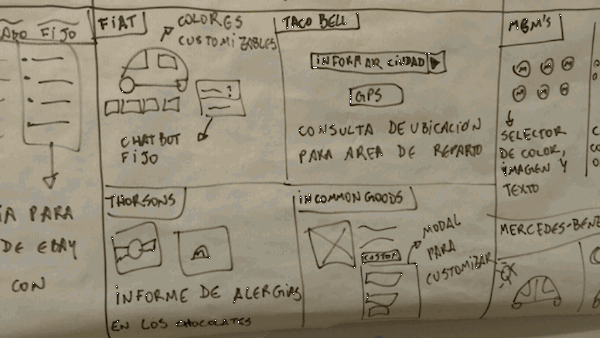 ADO FIJO
IA PARA
DE EBAY
CON
FIAT
COLORES
CUSTOMIZABLES
CHATBOT
FIJO
TACO BELL
INFORMAR CIUDAD
GPS
CONSULTA DE UBICACIÓN
PARA AREA DE REPARTO
M&M'S
M M M
M M M
SELECTOR
DE COLOR,
IMAGEN Y
TEXTO
THORSONS
INFORME DE ALERGIAS
EN LOS CHOCOLATES
INCOMMON GOODS
CUSTOM
MODAL
PARA
CUSTOMIZAR
MERCEDES-BENZ